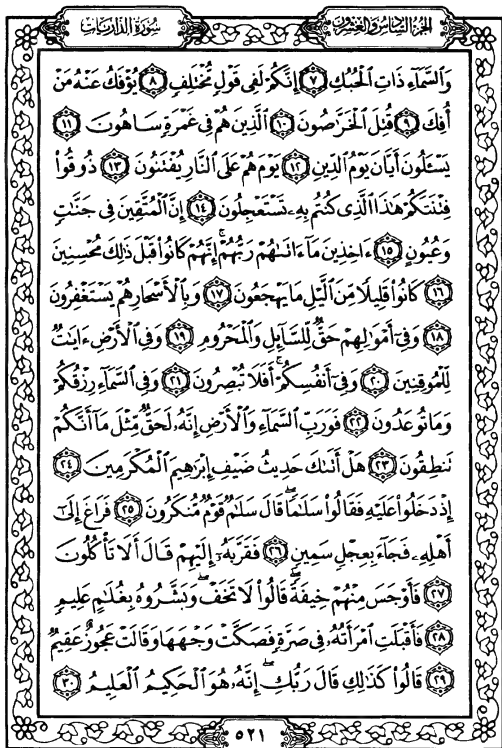 سُورَةُ الذَّارِيَاتِ
الجُزْءُ السَّادِسُ وَالعِشْرُونَ
وَٱلسَّمَآءِ ذَاتِ ٱلْحُبُكِ ٧ إِنَّكُمْ لَفِى قَوْلٍ مُّخْتَلِفٍ ٨ يُؤْفَكُ عَنْهُ مَنْ
أُفِكَ ٩ قُتِلَ ٱلْخَرَّٰصُونَ ١٠ ٱلَّذِينَ هُمْ فِى غَمْرَةٍ سَاهُونَ ١١
يَسْـَٔلُونَ أَيَّانَ يَوْمُ ٱلدِّينِ ١٢ يَوْمَ هُمْ عَلَى ٱلنَّارِ يُفْتَنُونَ ١٣ ذُوقُوا۟
فِتْنَتَكُمْ هَٰذَا ٱلَّذِى كُنتُم بِهِۦ تَسْتَعْجِلُونَ ١٤ إِنَّ ٱلْمُتَّقِينَ فِى جَنَّٰتٍ
وَعُيُونٍ ١٥ ءَاخِذِينَ مَآ ءَاتَىٰهُمْ رَبُّهُمْ ۚ إِنَّهُمْ كَانُوا۟ قَبْلَ ذَٰلِكَ مُحْسِنِينَ
١٦ كَانُوا۟ قَلِيلًا مِّنَ ٱلَّيْلِ مَا يَهْجَعُونَ ١٧ وَبِٱلْأَسْحَارِ هُمْ يَسْتَغْفِرُونَ
١٨ وَفِىٓ أَمْوَٰلِهِمْ حَقٌّ لِّلسَّآئِلِ وَٱلْمَحْرُومِ ١٩ وَفِى ٱلْأَرْضِ ءَايَٰتٌ
لِّلْمُوقِنِينَ ٢٠ وَفِىٓ أَنفُسِكُمْ ۚ أَفَلَا تُبْصِرُونَ ٢١ وَفِى ٱلسَّمَآءِ رِزْقُكُمْ
وَمَا تُوعَدُونَ ٢٢ فَوَرَبِّ ٱلسَّمَآءِ وَٱلْأَرْضِ إِنَّهُۥ لَحَقٌّ مِّثْلَ مَآ أَنَّكُمْ
تَنطِقُونَ ٢٣ هَلْ أَتَىٰكَ حَدِيثُ ضَيْفِ إِبْرَٰهِيمَ ٱلْمُكْرَمِينَ ٢٤
إِذْ دَخَلُوا۟ عَلَيْهِ فَقَالُوا۟ سَلَٰمًا ۖ قَالَ سَلَٰمٌ قَوْمٌ مُّنكَرُونَ ٢٥ فَرَاغَ إِلَىٰٓ
أَهْلِهِۦ فَجَآءَ بِعِجْلٍ سَمِينٍ ٢٦ فَقَرَّبَهُۥٓ إِلَيْهِمْ قَالَ أَلَا تَأْكُلُونَ
٢٧ فَأَوْجَسَ مِنْهُمْ خِيفَةً ۖ قَالُوا۟ لَا تَخَفْ ۖ وَبَشَّرُوهُ بِغُلَٰمٍ عَلِيمٍ
٢٨ فَأَقْبَلَتِ ٱمْرَأَتُهُۥ فِى صَرَّةٍ فَصَكَّتْ وَجْهَهَا وَقَالَتْ عَجُوزٌ عَقِيمٌ
٢٩ قَالُوا۟ كَذَٰلِكِ قَالَ رَبُّكِ ۖ إِنَّهُۥ هُوَ ٱلْحَكِيمُ ٱلْعَلِيمُ ٣٠
٥٢١